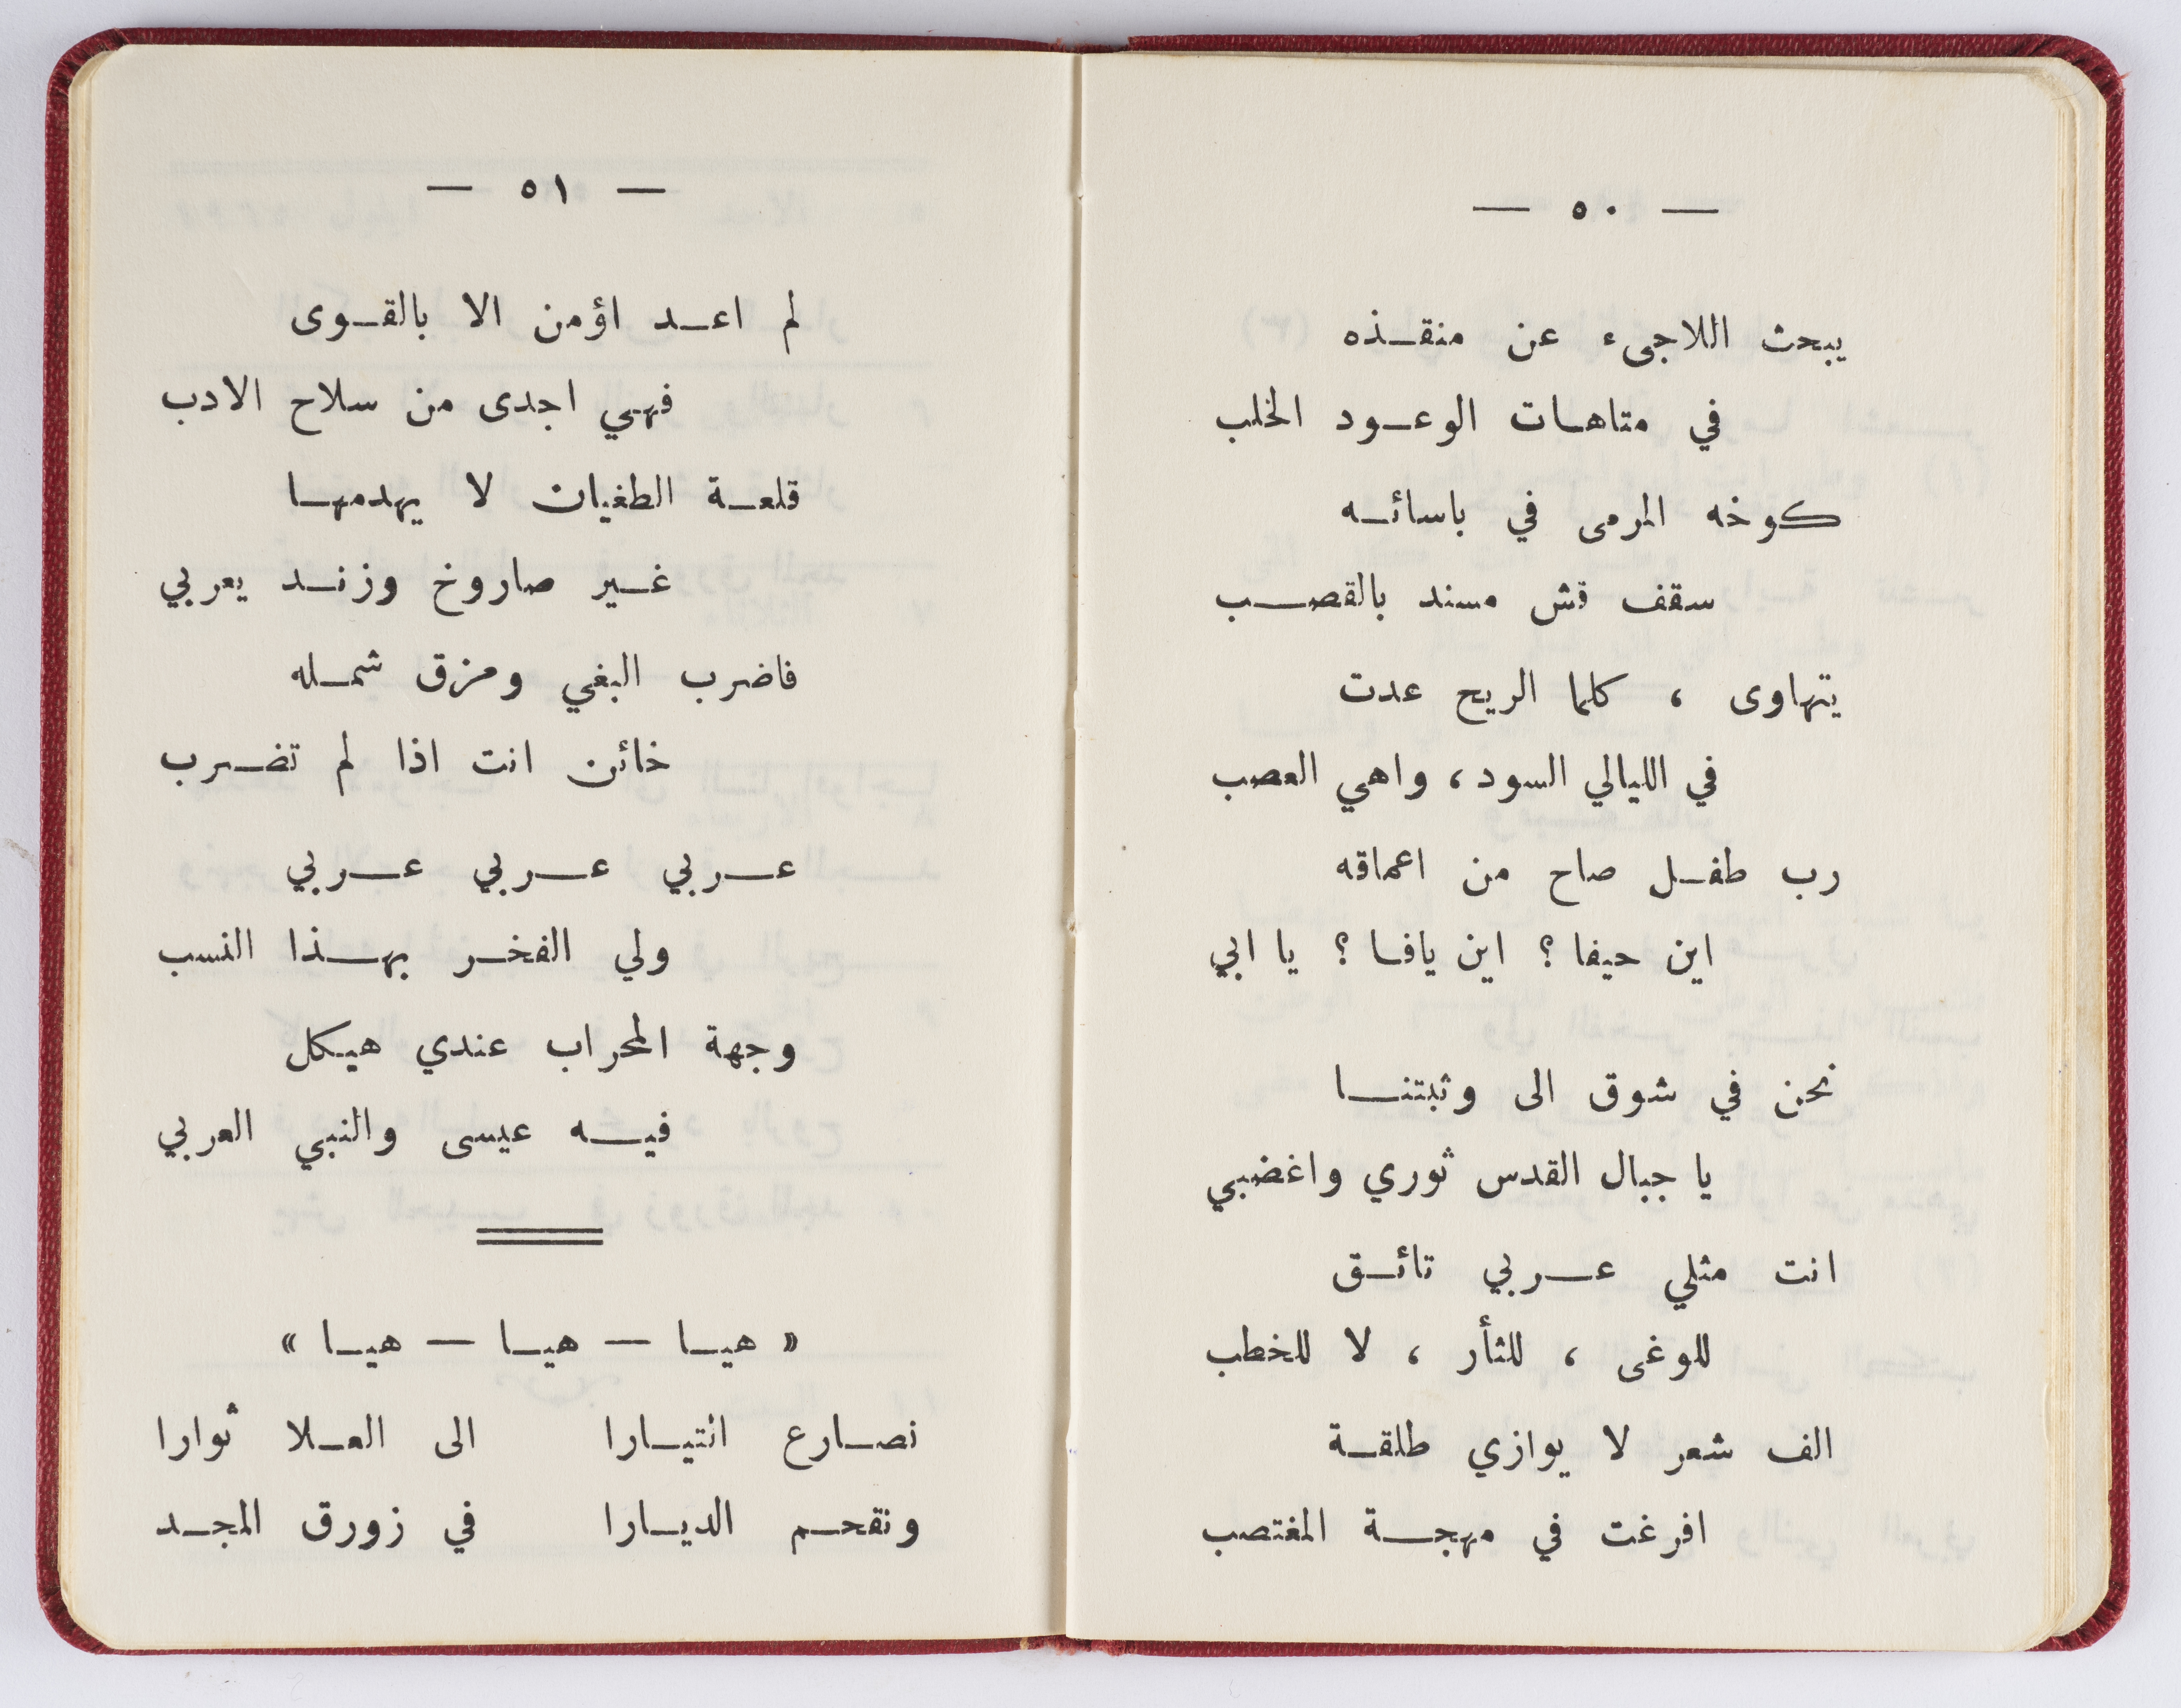 — ٥٠ —
يبحث اللاجىء عن منقذه
في متاهات الوعود الخلب
كوخه المرمى في باسائه
سقف قش مسند بالقصب
يتهاوى ، كلما الريح عدت
في الليالي السود ، واهي العصب
رب طفل صاح من اعماقه
اين حيفا ؟ اين يافا ؟ يا ابي
نحن في شوق الى وثبتنا
يا جبال القدس ثوري واغضبي
انت مثلي عربي تائق
للوغى ، للثأر ، لا للخطب
الف شعر لا يوازي طلقة
افرغت في مهجة المغتصب
— ٥١ —
لم اعد اؤمن الا بالقوى
فهي اجدى من سلاح الادب
قلعة الطغيان لا يهدمها
غير صاروخ وزند يعربي
فاضرب البغي ومزق شمله
خائن انت اذا لم تضرب
عربي عربي عربي
ولي الفخر بهذا النسب
وجهة المحراب عندي هيكل
فيه عيسى والنبي العربي
« هيا — هيا — هيا »
نصارع التيارا الى العلا ثوارا
ونقحم الديارا في زورق المجد